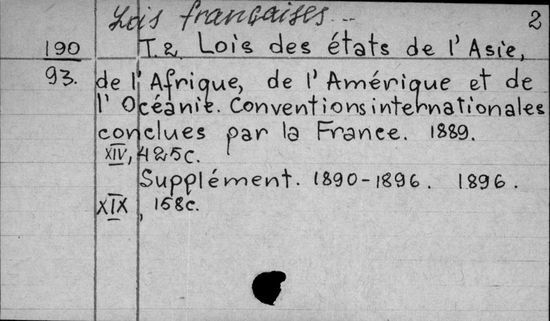 Lois françaises... 2
190 T.2. Lois des états de l'Asie,
93. de l'Afrique, de l'Amérique et de
l'Océanie. Conventions internationales
conclues par la France. 1889.
XIV, 425c.
Supplément. 1890-1896. 1896.
XIX, 158c.